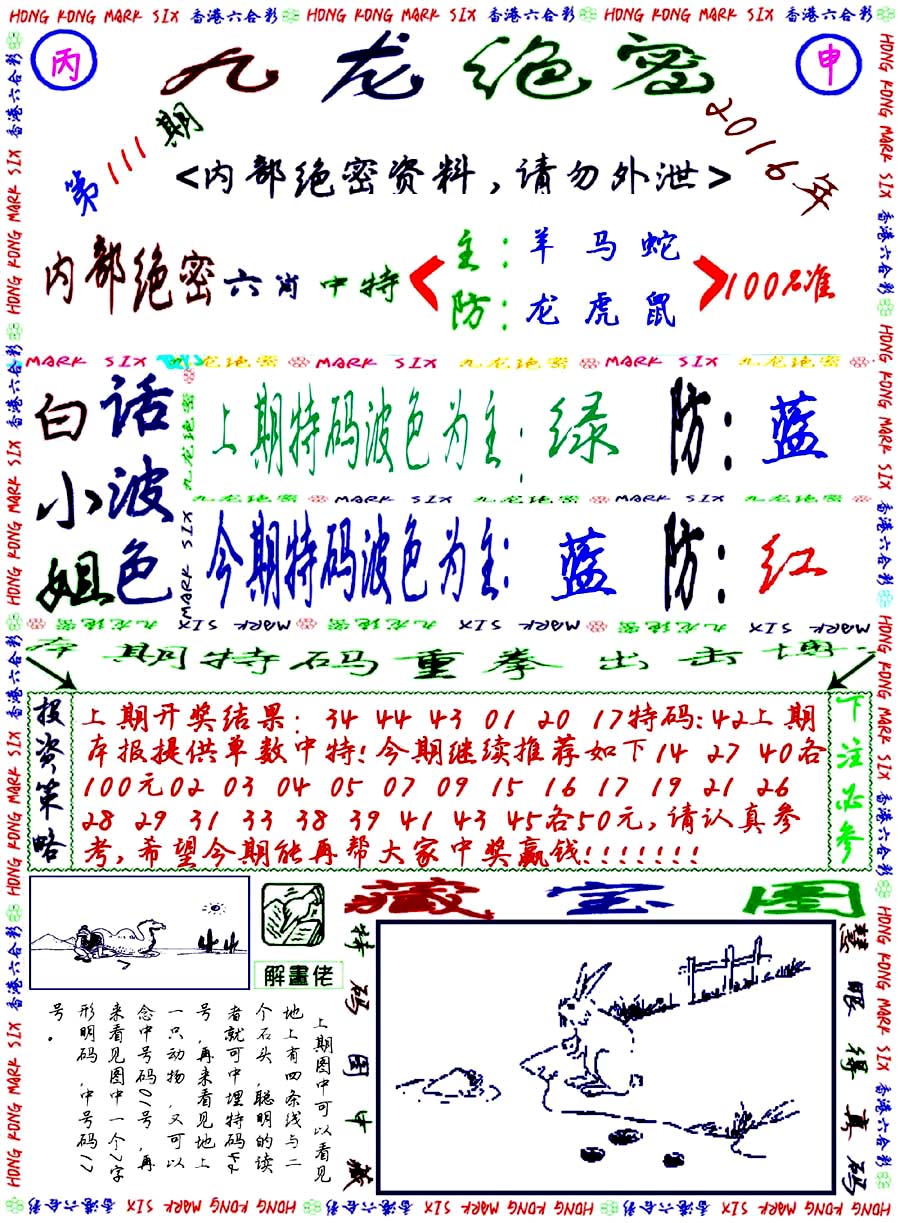 HONG KONG MARK SIX 香港六合彩 HONG KONG MARK SIX 香港六合彩 HONG KONG MARK SIX 香港六合彩
丙
九龙绝密
申
第111期
2016年
<内部绝密资料,请勿外泄>
内部绝密六肖中特
主:羊马蛇
防:龙虎鼠
100%准
MARK SIX 九龙绝密 MARK SIX 九龙绝密 MARK SIX 九龙绝密
白话
小波
姐色
上期特码波色为主:绿 防:蓝
九龙绝密 MARK SIX 九龙绝密 MARK SIX 九龙绝密
今期特码波色为主:蓝 防:红
本期特码重拳出击博
投资策略
上期开奖结果:34 44 43 01 20 17特码:42上期
本报提供单数中特!今期继续推荐如下14 27 40各
100元02 03 04 05 07 09 15 16 17 19 21 26
28 29 31 33 38 39 41 43 45各50元,请认真参
考,希望今期能再帮大家中奖赢钱!!!!!!!
下注必参
解畫佬
藏宝图
特码图中藏
慧眼得真码
上期图中可以看见
地上有四条线与二
个石头,聪明的读
者就可中埋特码42
号,再来看见地上
一只动物,又可以
念中号码01号,再
来看见图中一个7字
形明码,中号码17
号。